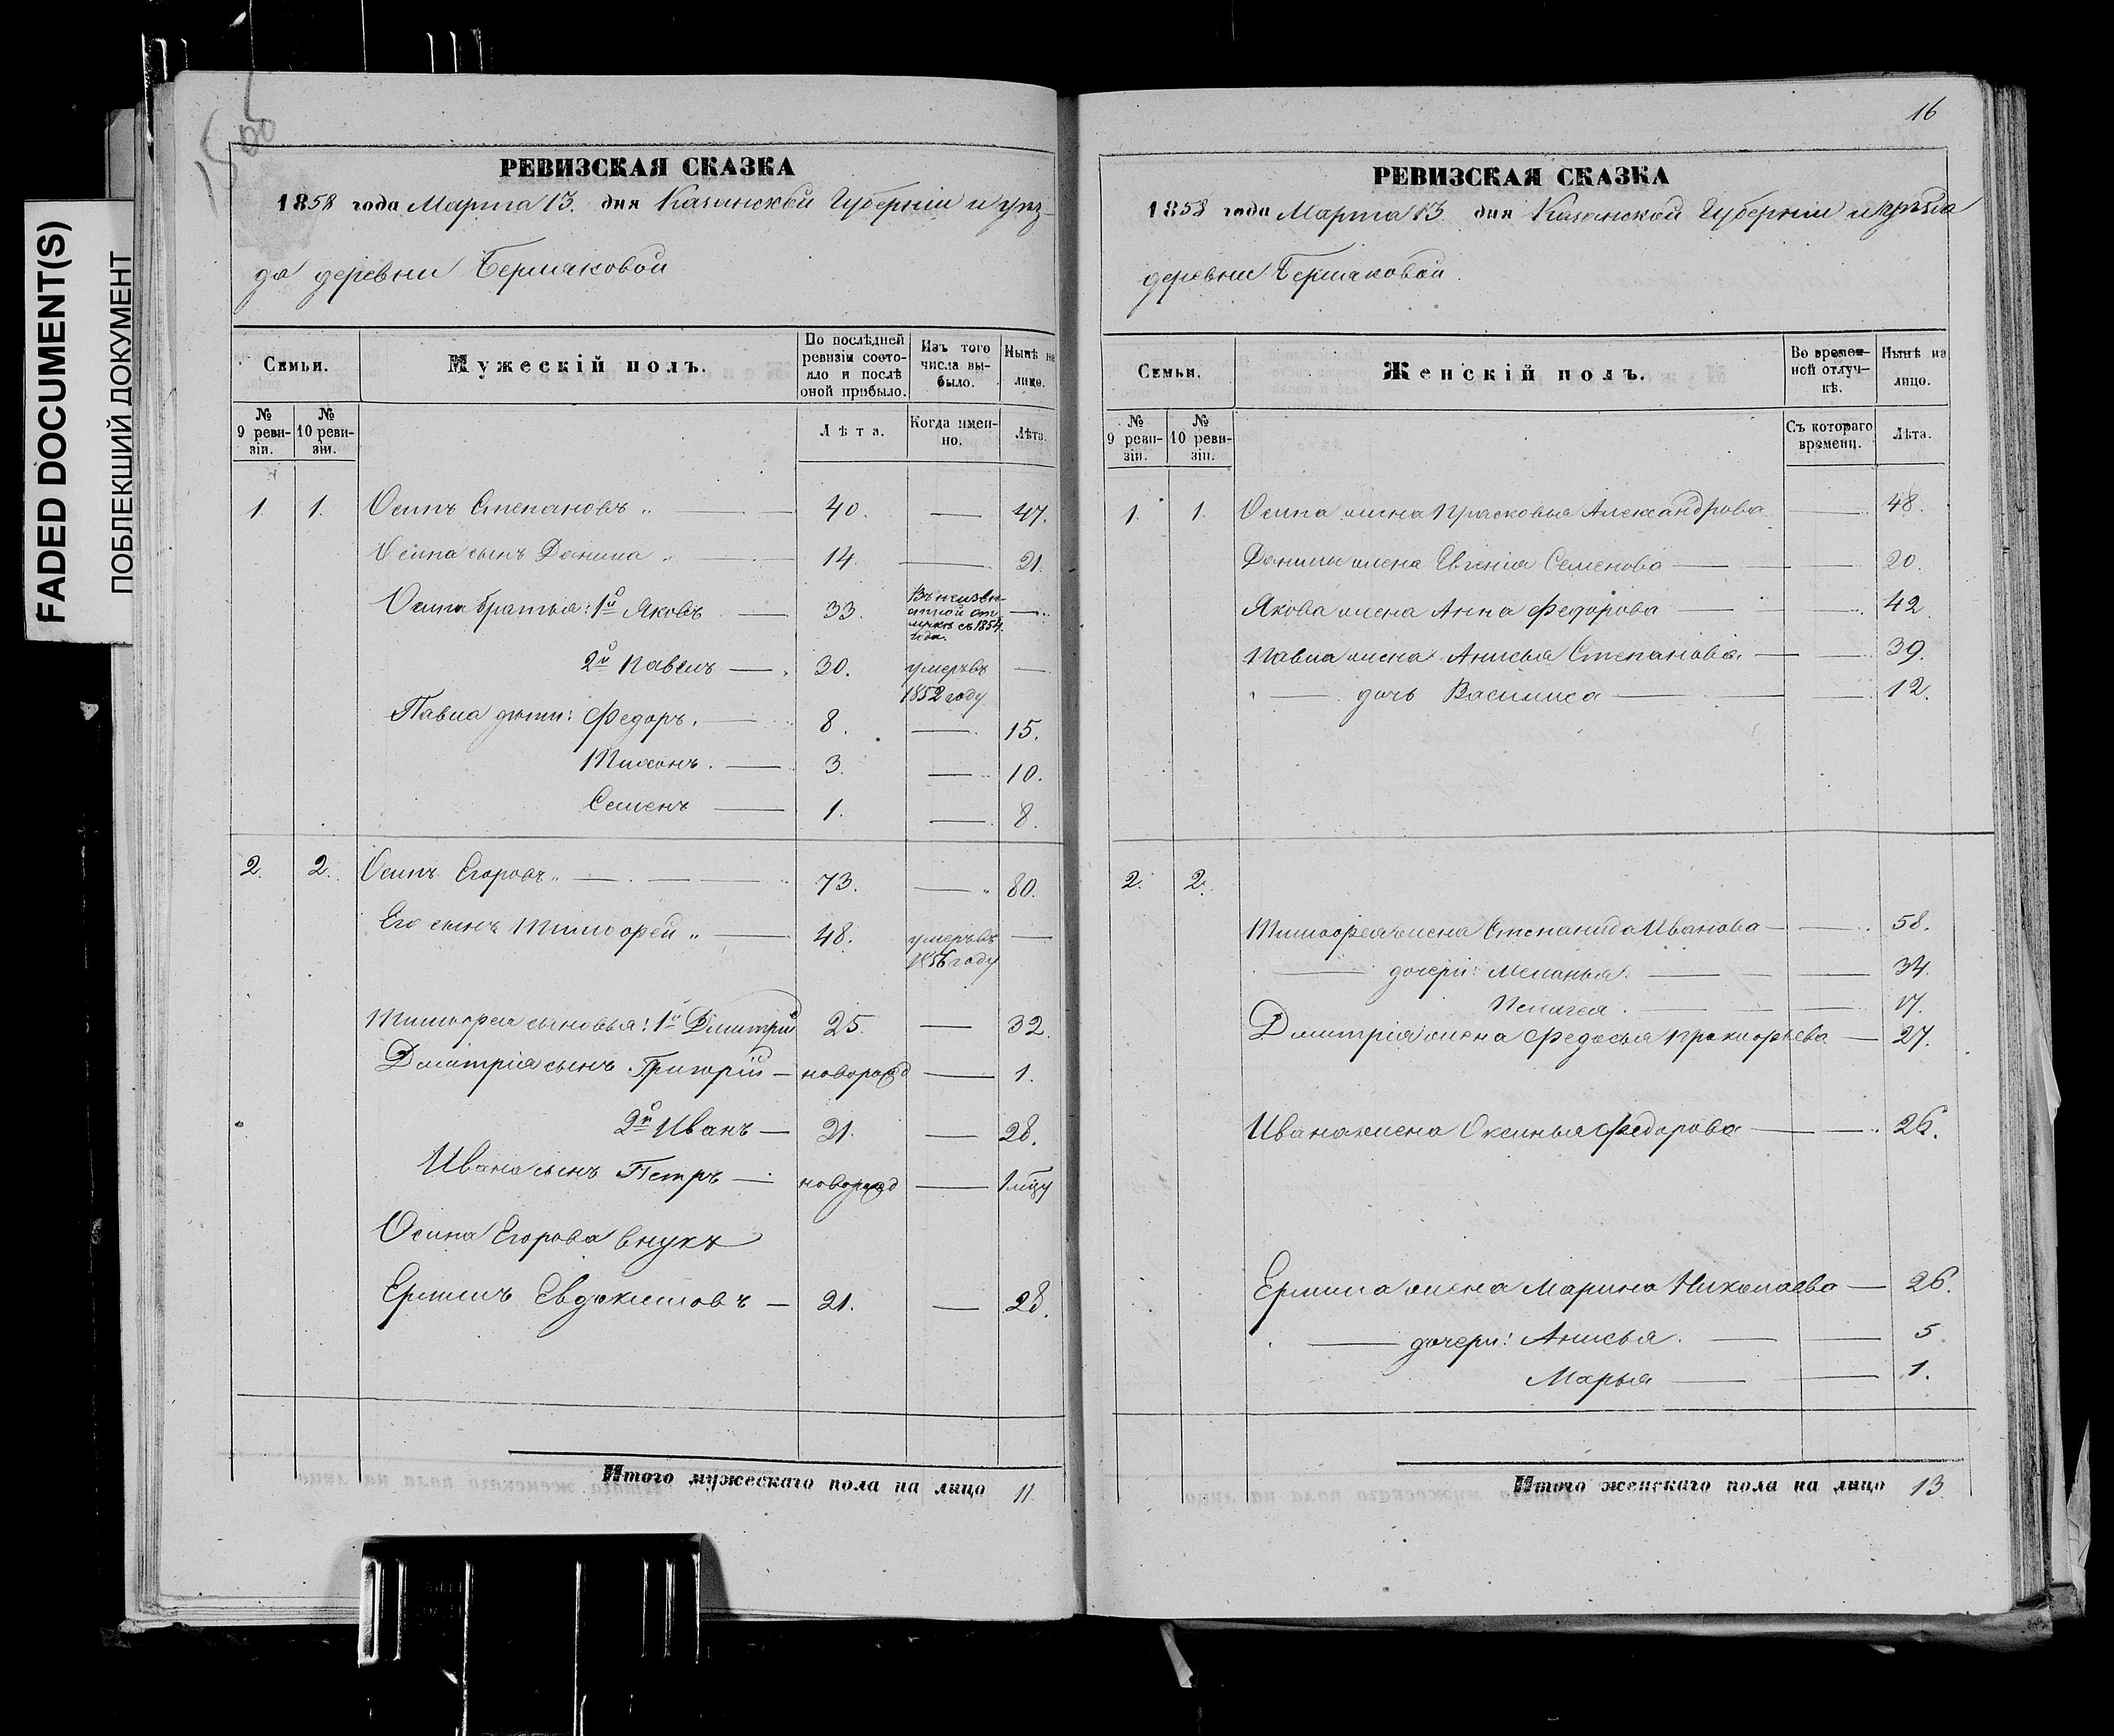 FADED DOCUMENT(S)
ПОБЛЕКШИЙ ДОКУМЕНТ
1500
РЕВИЗСКАЯ СКАЗКА
1858 года Марта 13. дня Казанской Губерніи и уѣз-
да деревни Бермяковой
Семьи.
Мужескій полъ.
По послѣдней ревизіи состояло и послѣ оной прибыло.
Изъ того числа выбыло.
Нынѣ на лицо.
№ 9 ревизіи.
№ 10 ревизіи.
Лѣта.
Когда именно.
Лѣта.
1. 1. Осипъ Степановъ 40. 47.
Осипа сынъ Данила 14. 21.
Осипа братья: 1й Яковъ 33. Въ неизвѣстной отлучкѣ съ 1854. года.
2й Павелъ 30. умеръ въ 1852 году
Павла дѣти: Федоръ. 8. 15.
Тихонъ. 3. 10.
Семенъ 1. 8.
2. 2. Осипъ Егоровъ 73. 80.
Его сынъ Тимофей 48. умеръ въ 1856 году
Тимофея сыновья: 1й Дмитрій 25. 32.
Дмитрія сынъ Григорій новорожд 1.
2й Иванъ 21. 28.
Ивана сынъ Петръ новорожд 1 мцу
Осипа Егорова внукъ
Ермилъ Евдокимовъ 21. 28.
Итого мужескаго пола на лицо 11.
16
РЕВИЗСКАЯ СКАЗКА
1858 года Марта 13 дня Казанской Губерніи и уѣзда
деревни Бермяковой.
Семьи.
Женскій полъ.
Во временной отлучкѣ.
Нынѣ на лицо.
№ 9 ревизіи.
№ 10 ревизіи.
Съ котораго времени.
Лѣта.
1. 1. Осипа жена Прасковья Александрова 48.
Данилы жена Евгенія Семенова 20.
Якова жена Анна Федорова 42
Павла жена Анисья Степанова. 39.
дочь Василиса 12.
2. 2.
Тимофея жена Степанида Иванова 58.
дочери: Меланья. 34.
Пелагея. 17.
Дмитрія жена Федосья Прокофьева 27.
Ивана жена Оксинья Федорова 26.
Ермила жена Марина Николаева 26.
дочери: Анисья. 5.
Марья 1.
Итого женскаго пола на лицо 13